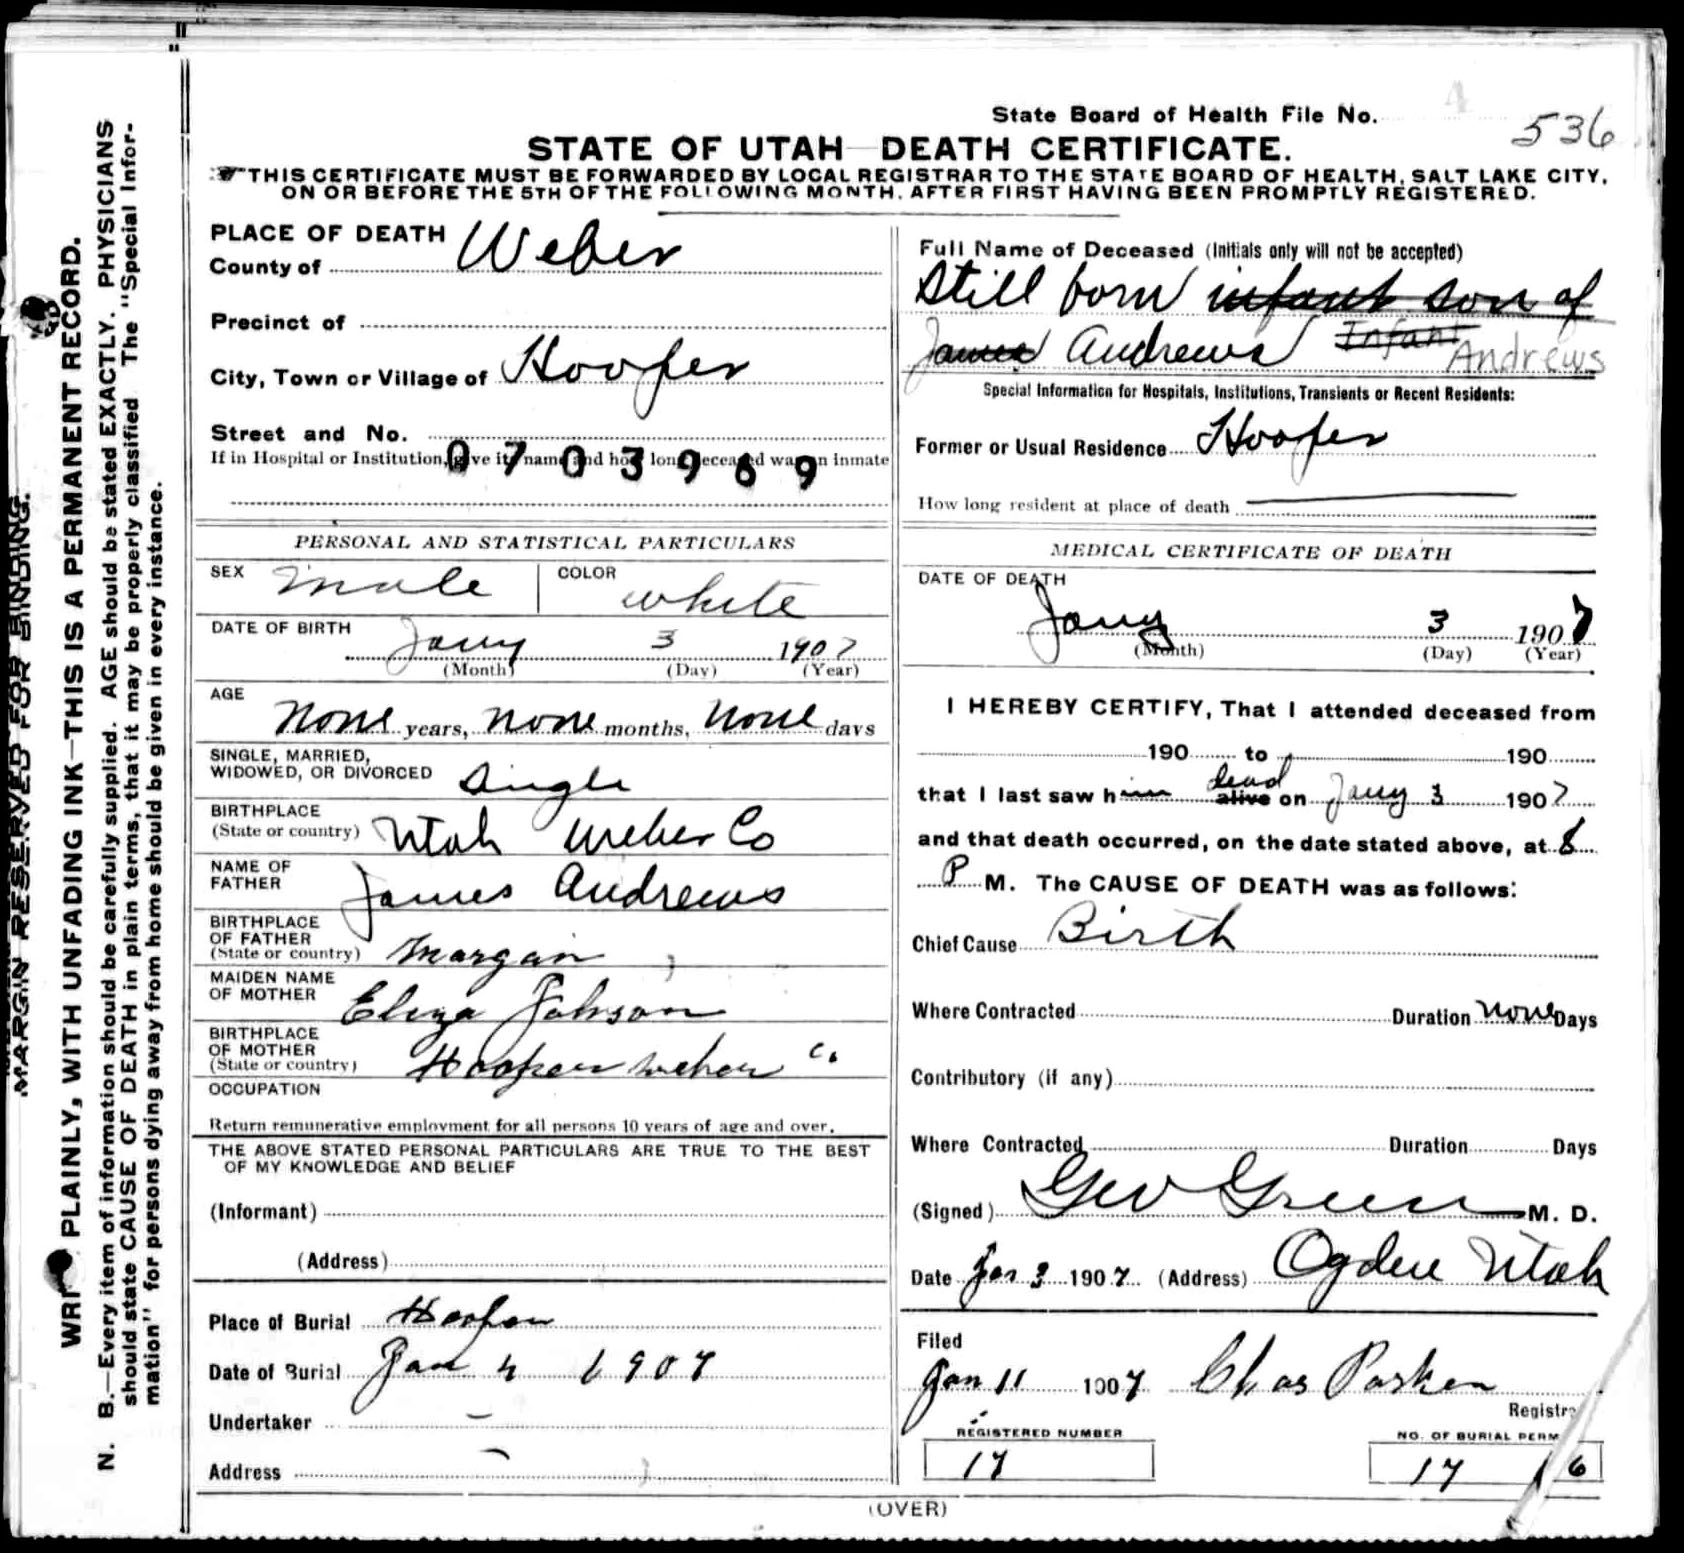 State Board of Health File No. 536
STATE OF UTAH DEATH CERTIFICATE.
THIS CERTIFICATE MUST BE FORWARDED BY LOCAL REGISTRAR TO THE STATE BOARD OF HEALTH, SALT LAKE CITY,
ON OR BEFORE THE 5TH OF THE FOLLOWING MONTH, AFTER FIRST HAVING BEEN PROMPTLY REGISTERED.
MARGIN RESERVED FOR BINDING.
PLAINLY, WITH UNFADING INK—THIS IS A PERMANENT RECORD.
N. B.—Every item of information should be carefully supplied. AGE should be stated EXACTLY. PHYSICIANS
should state CAUSE OF DEATH in plain terms, that it may be properly classified The "Special Infor-
mation" for persons dying away from home should be given in every instance.
PLACE OF DEATH
County of Weber
Precinct of
City, Town or Village of Hooper
Street and No.
0703969
If in Hospital or Institution, give its name and how long deceased was an inmate
PERSONAL AND STATISTICAL PARTICULARS
SEX male COLOR white
DATE OF BIRTH Jany 3 1907
(Month) (Day) (Year)
AGE
none years, none months, none days
SINGLE, MARRIED,
WIDOWED, OR DIVORCED Single
BIRTHPLACE
(State or country) Utah Weber Co
NAME OF
FATHER James Andrews
BIRTHPLACE
OF FATHER
(State or country) Morgan
MAIDEN NAME
OF MOTHER Eliza Johnson
BIRTHPLACE
OF MOTHER
(State or country) Hooper Weber Co.
OCCUPATION
Return remunerative employment for all persons 10 years of age and over.
THE ABOVE STATED PERSONAL PARTICULARS ARE TRUE TO THE BEST
OF MY KNOWLEDGE AND BELIEF
(Informant)
(Address)
Place of Burial Hooper
Date of Burial Jan 4 1907
Undertaker –
Address –
Full Name of Deceased (Initials only will not be accepted)
Still born infant son of
James Andrews Infant Andrews
Special Information for Hospitals, Institutions, Transients or Recent Residents:
Former or Usual Residence Hooper
How long resident at place of death
MEDICAL CERTIFICATE OF DEATH
DATE OF DEATH
Jany 3 1907
(Month) (Day) (Year)
I HEREBY CERTIFY, That I attended deceased from
190 to 190
dead
that I last saw him alive on Jany 3 1907
and that death occurred, on the date stated above, at 8
P M. The CAUSE OF DEATH was as follows:
Chief Cause Birth
Where Contracted Duration none Days
Contributory (if any)
Where Contracted Duration Days
(Signed) Geo Green M. D.
Date Jan 3 1907 (Address) Ogden Utah
Filed
Jan 11 1907 Chas Parker
Registra
REGISTERED NUMBER
17
NO. OF BURIAL PERM
17 6
(OVER)